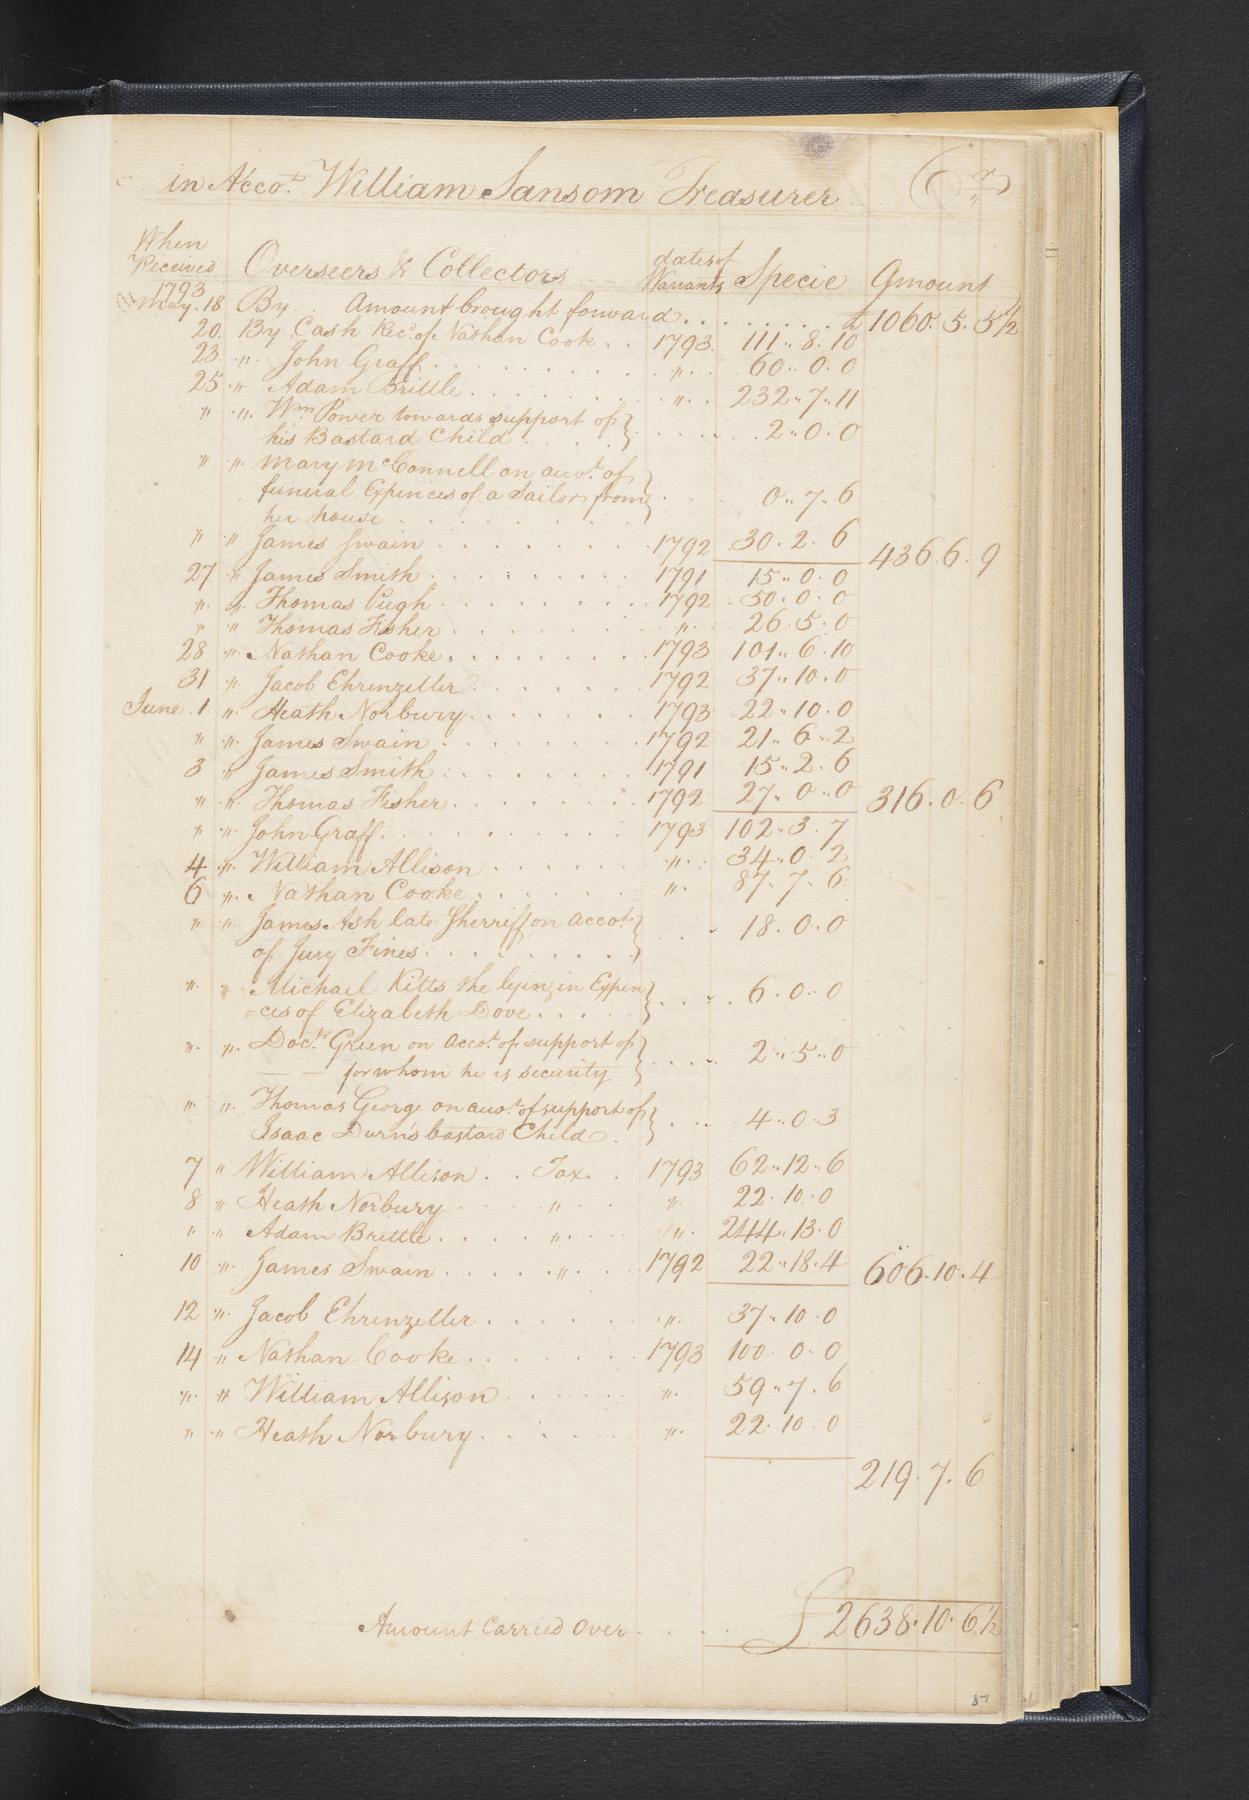 in Acco.t William Sansom Treasurer (67)
When Received Overseers & Collectors dates of Warrants Specie Amount
1793
May. 18 By Amount brought forward . . . . . . . £ 1060. 5. 5½
20. By Cash Rec.d of Nathan Cook . . 1793. 111 .. 8. 10
23. " John Graff . . . . " . . 60 .. 0. 0
25 " Adam Brittle . . . . " . . 232 .. 7 .. 11
" " Wm Power towards support of
his Bastard Child . . . . 2 .. 0. 0
" " Mary McConnell on acco.t of
funeral Expences of a Sailor from
her house . . . . 0 .. 7. 6
" " James Swain . . . . 1792 30. 2. 6 436. 6. 9
27 " James Smith . . . . 1791 15 .. 0. 0
" " Thomas Pugh . . . . 1792 50. 0. 0
" " Thomas Fisher . . . . " 26. 5. 0
28 " Nathan Cooke . . . . 1793 101 .. 6. 10
31 " Jacob Ehrenzeller . . . . 1792 37 .. 10. 0
June. 1 " Heath Norbury . . . . 1793 22 .. 10. 0
" " James Swain . . . . 1792 21 .. 6 .. 2
3 " James Smith . . . . 1791 15 .. 2. 6
" " Thomas Fisher . . . . 1792 27 .. 0 .. 0 316. 0. 6
" " John Graff . . . . 1793 102 .. 3. 7
4 " William Allison . . . . " 34 .. 0. 2
6 " Nathan Cooke . . . . " 87. 7. 6
" " James Ash late Sherriff on acco.t
of Jury Fines . . . . 18. 0. 0
" " Michael Kitts the lying in Expen
=ces of Elizabeth Dove . . . . 6. 0. 0
" " Doc.tr Green on acco.t of support of
— — for whom he is security . . . . 2 .. 5 .. 0
" " Thomas George on acco.t of support of
Isaac Durn's bastard Child . . . . 4 .. 0. 3
7 " William Allison . . Tax . 1793 62 .. 12 .. 6
8 " Heath Norbury . . " . . " 22. 10. 0
" " Adam Brittle . . . . " . . " 244 .. 13. 0
10 " James Swain . . . . " . . 1792 22 .. 18. 4 606. 10. 4
12 " Jacob Ehrenzeller . . . . " 37 .. 10. 0
14 " Nathan Cooke . . . . 1793 100. 0. 0
" " William Allison . . . . " 59 .. 7. 6
" " Heath Norbury . . . . " 22. 10. 0
219. 7. 6
Amount Carried Over . . . . £ 2638. 10. 6½
87